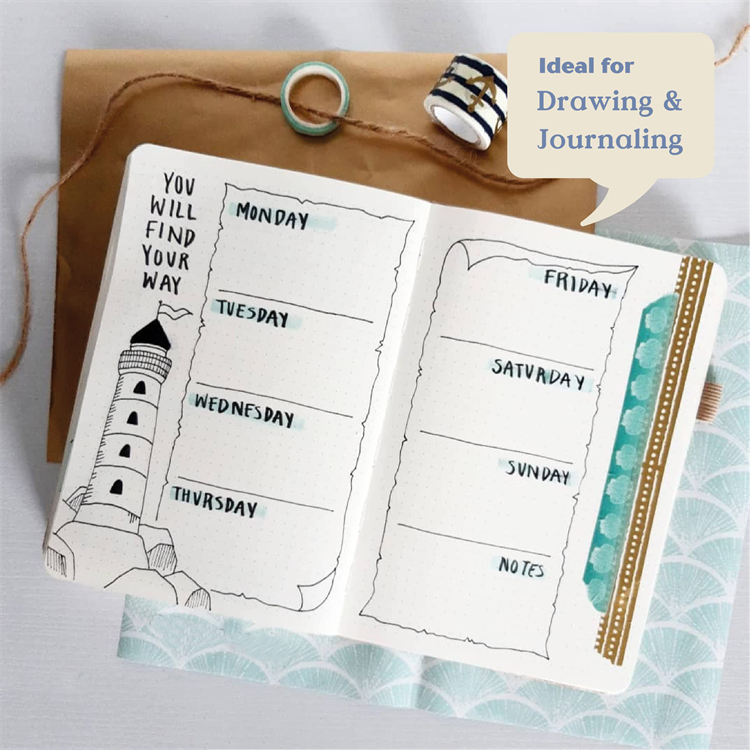 Ideal for
Drawing &
Journaling
YOU
WILL
FIND
YOUR
WAY
MONDAY
TUESDAY
WEDNESDAY
THURSDAY
FRIDAY
SATURDAY
SUNDAY
NOTES